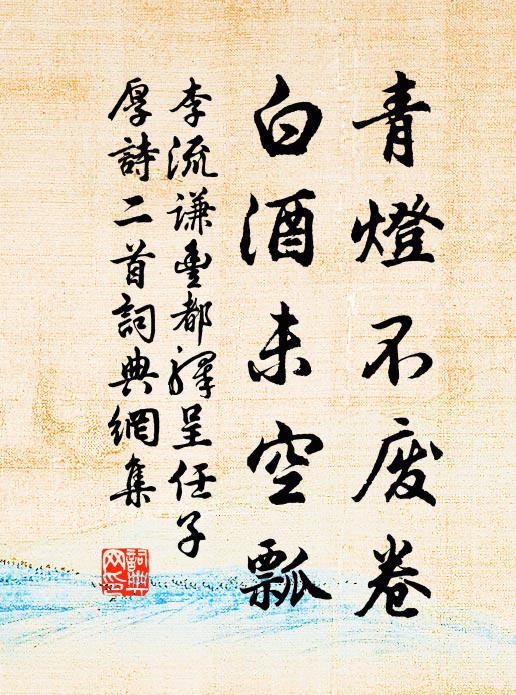 青燈不廢卷
白酒未空瓢
李流謙豐都驛呈任子
厚詩二首詞典網集